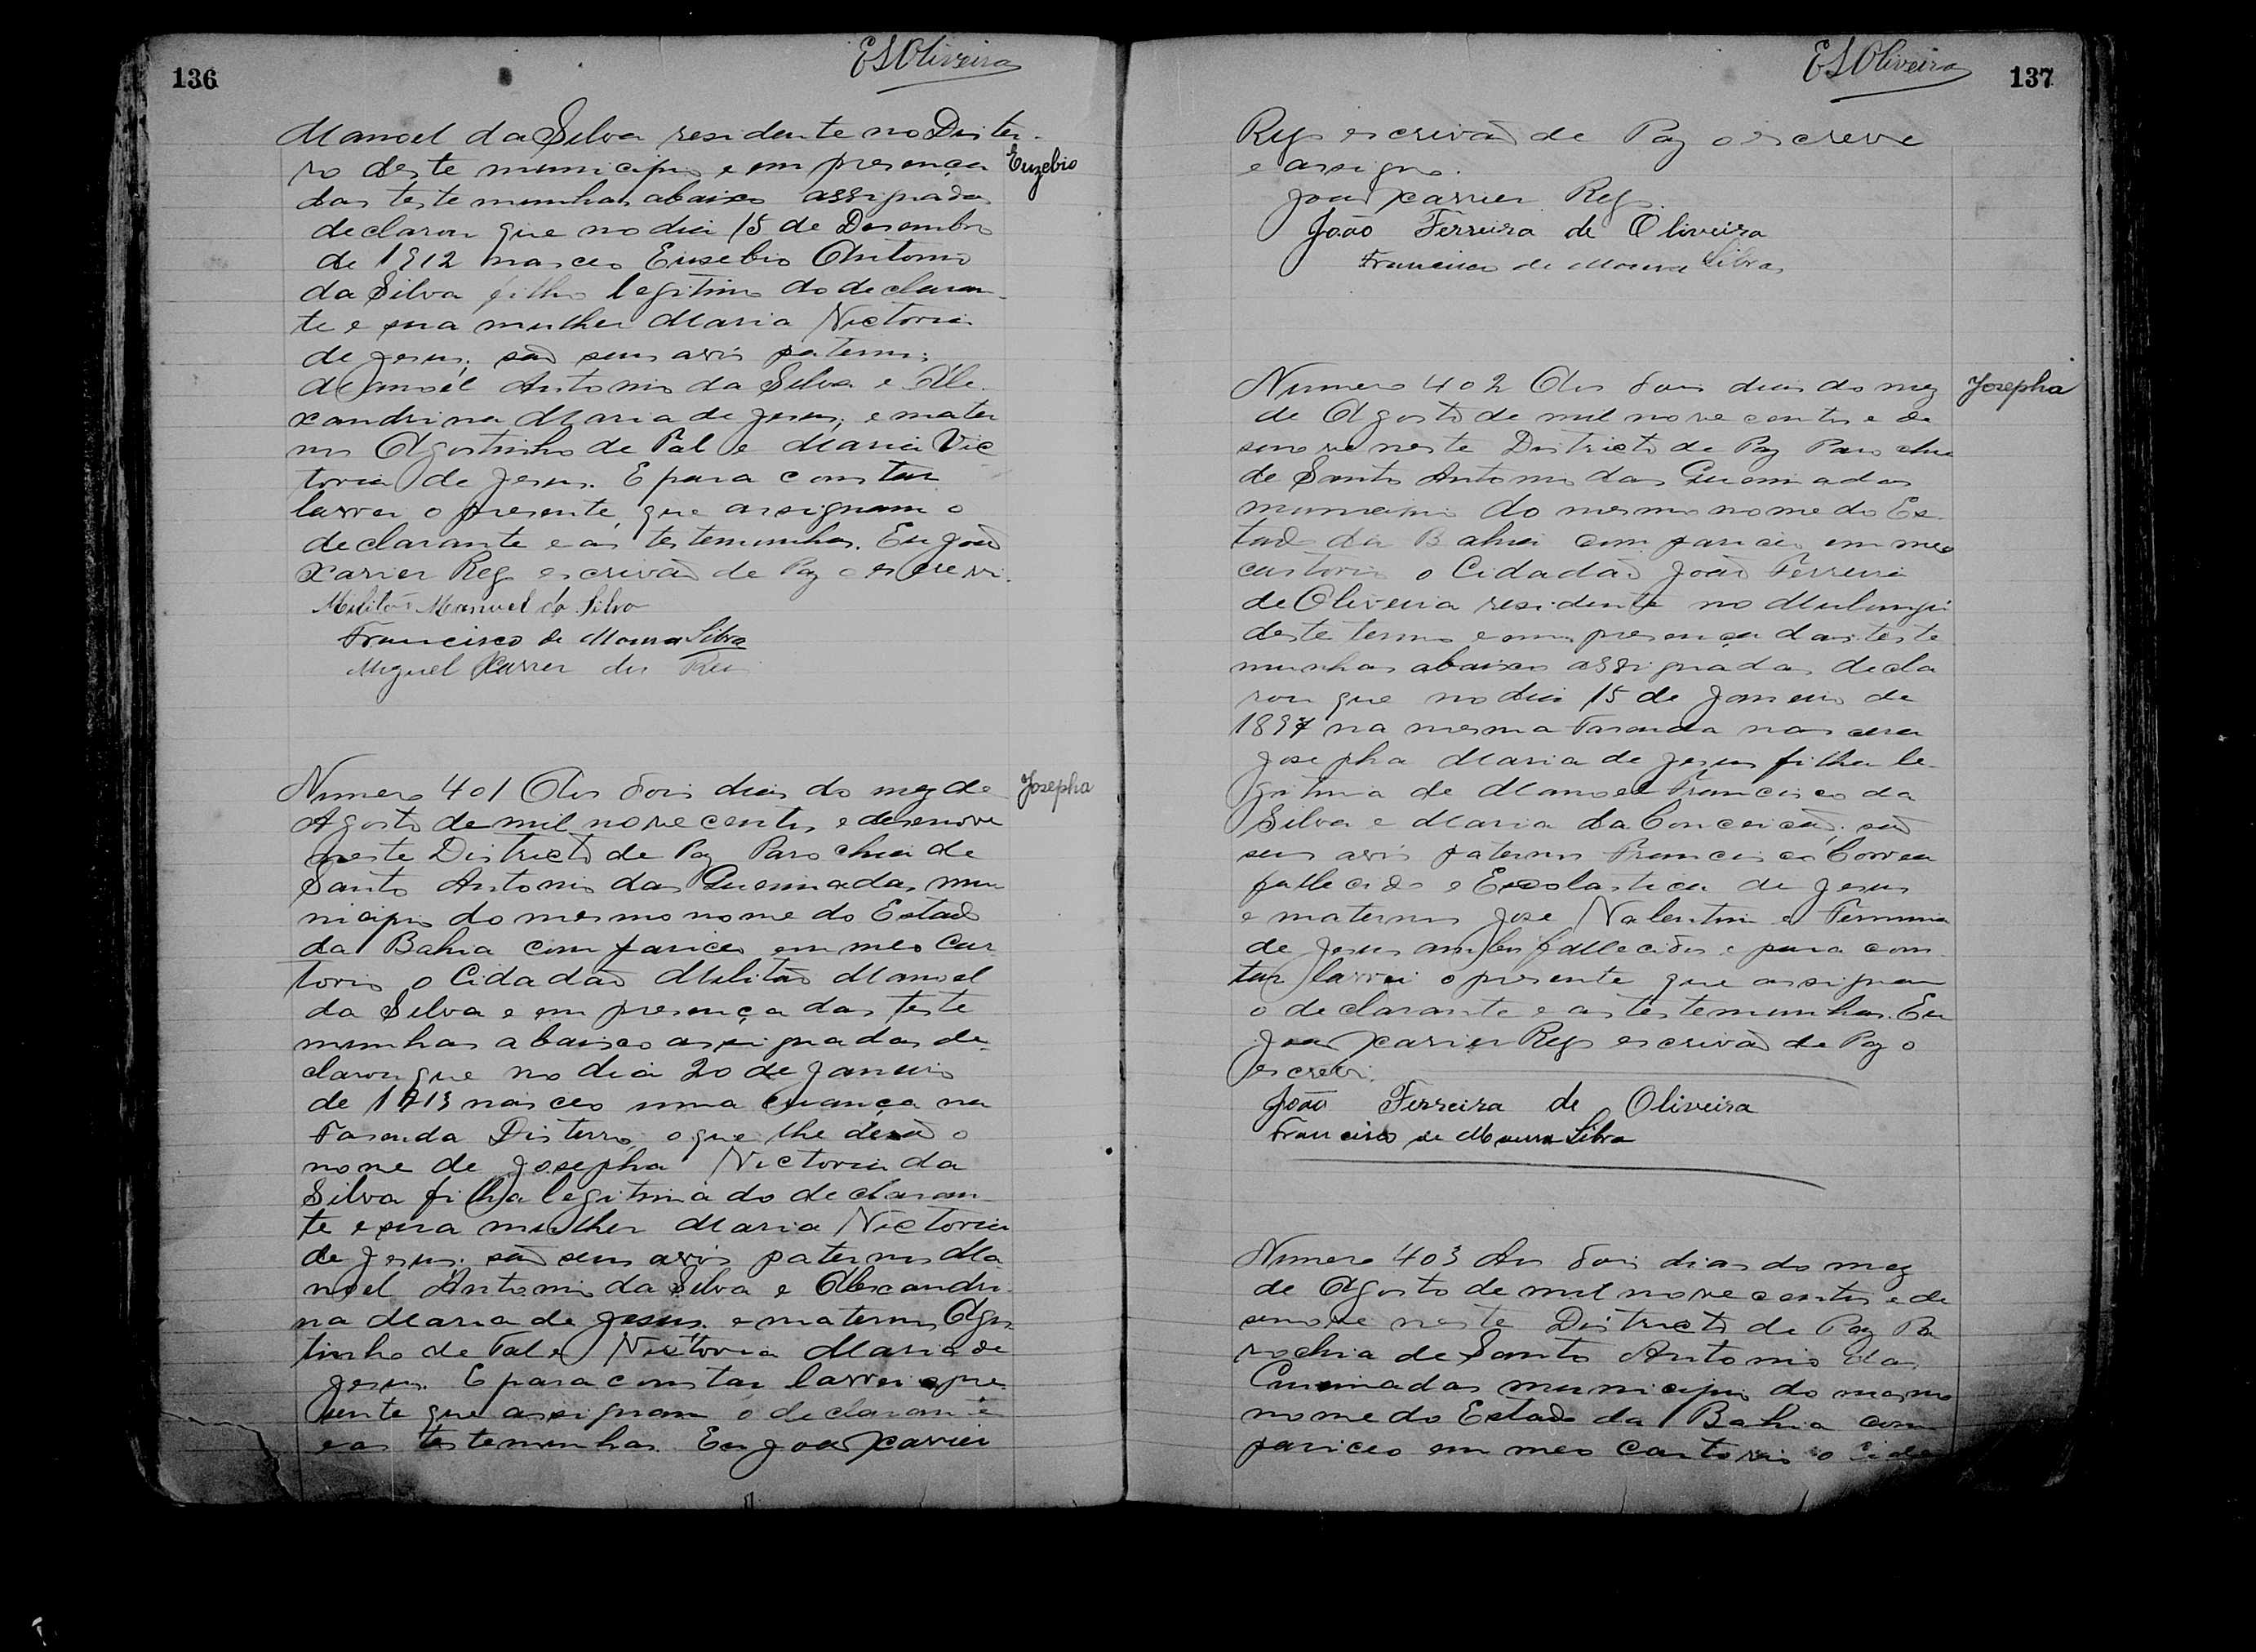 136
ESOliveira
Manoel da Silva residente no Dister-
ro deste municipio e em presença
Euzebio
das testemunhas abaixo assignadas
declarou que no dia 15 de Desembro
de 1912 nasceo Eusebio Antonio
da Silva filho legitimo do declaran-
te e sua mulher Maria Victoria
de Jesus; são seus avós paternos;
Manoel Antonio da Silva e Ale-
xandrina Maria de Jesus; e mater
nos Agostinho de Tal e Maria Vic
toria de Jesus. E para constar
lavrei o presente que assignam o
declarante e as testemunhas. Eu João
Xavier Reg escrivão de Paz o escrevi.
Militão Manuel da Silva
Francisco de Moura Silva
Miguel Xavier dos Reis
Numero 401 Aos dois dias do mez de
Josepha
Agosto de mil nove centos e desenove
neste Districto de Paz Parochia de
Santo Antonio das Queimadas mu
nicipio do mesmo nome do Estado
da Bahia compariceo em meo Car
torio o Cidadão Militão Manoel
da Silva e em presença das teste
munhas abaixo assignadas de-
clarou que no dia 20 de Janeiro
de 1913 nasceo uma criança na
Fasenda Disterro, o que lhe derão o
nome de Josepha Victoria da
Silva filha legitima do declaran-
te e sua mulher Maria Victoria
de Jesus; são seus avós paternos Ma
noel Antonio da Silva e Alexandri-
na Maria de Jesus. e maternos Agos
tinho de Tal e Victoria Maria de
Jesus. E para constar lavrei o pre
sente que assignam o declarante
e as testemunhas. Eu João Xavier
ESOliveira
137
Reg escrivão de Paz o escreve
e assigno.
João Xavier Reg
João Ferreira de Oliveira
Francisco de Moura Silva
Numero 402 Aos dois dias do mez
Josepha
de Agosto de mil nove centos e de
senove neste Districto de Paz Parochia
de Santo Antonio das Queimadas
municipio do mesmo nome do Es-
tado da Bahia compariceo em meo
cartorio o Cidadão João Ferreira
de Oliveira residente no Mulungú
deste termo e em presença das teste
munhas abaixo assignadas decla
rou que no dia 15 de Janeiro de
1897 na mesma Fasenda nascera
Josepha Maria de Jesus filha le-
gitima de Manoel Francisco da
Silva e Maria da Conceição; são
seus avós paternos Francisco Correa
fallecido e Escolastica de Jesus
e maternos José Valentim e Firmina
de Jesus ambos fallecidos e para cons
tar lavrei o presente que assignam
o declarante e as testemunhas. Eu
João Xavier Reg escrivão de Paz o
escrevi.
João Ferreira de Oliveira
Francisco de Moura Silva
Numero 403 Aos dois dias do mez
de Agosto de mil nove centos e de
senove neste Districto de Paz Pa
rochia de Santo Antonio das
Queimadas municipio do mesmo
nome do Estado da Bahia com
pariceo em meo cartorio o Cida